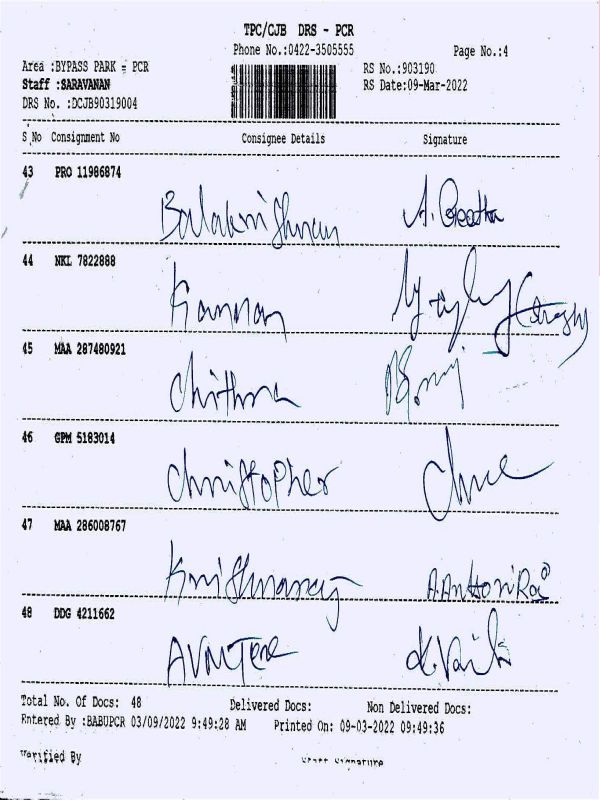 TPC/CJB DRS - PCR
Phone No.:0422-3505555
Page No.:4
Area :BYPASS PARK - PCR
RS No.:903190
Staff :SARAVANAN
RS Date:09-Mar-2022
DRS No. :DCJB90319004
S No Consignment No Consignee Details Signature
43 PRO 11986874
Balakrishnan A. Geetha
44 NKL 7822888
Kannan
45 MAA 287480921
Chithra
46 GPM 5183014
Christopher
47 MAA 286008767
Krishnaraj A.AnthoniRaj
48 DDG 4211662
AVM Tex
Total No. Of Docs: 48 Delivered Docs: Non Delivered Docs:
Entered By :BABUPCR 03/09/2022 9:49:28 AM Printed On: 09-03-2022 09:49:36
Verified By Staff Signature